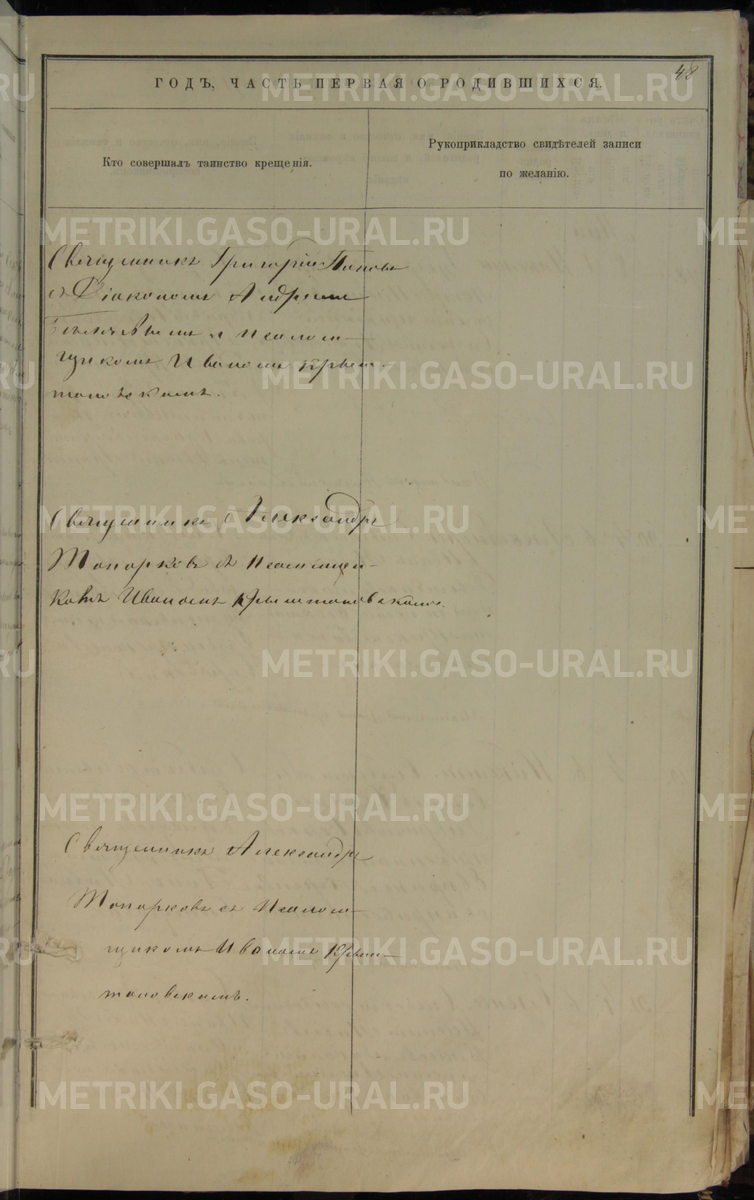 48
ГОДЪ, ЧАСТЬ ПЕРВАЯ О РОДИВШИХСЯ.
Кто совершалъ таинство крещенія.
Рукоприкладство свидѣтелей записи
по желанію.
Священникъ Григорій Поповъ
съ Діакономъ Андреемъ
и Псалом-
щикомъ Иваномъ Крыш-
тановскимъ.
Священникъ Александръ
Топорковъ съ Псаломщи-
комъ Иваномъ Крыштановскимъ.
Священникъ Александръ
Топорковъ съ Псалом-
щикомъ Иваномъ Крыш-
тановскимъ.
METRIKI.GASO-URAL.RU